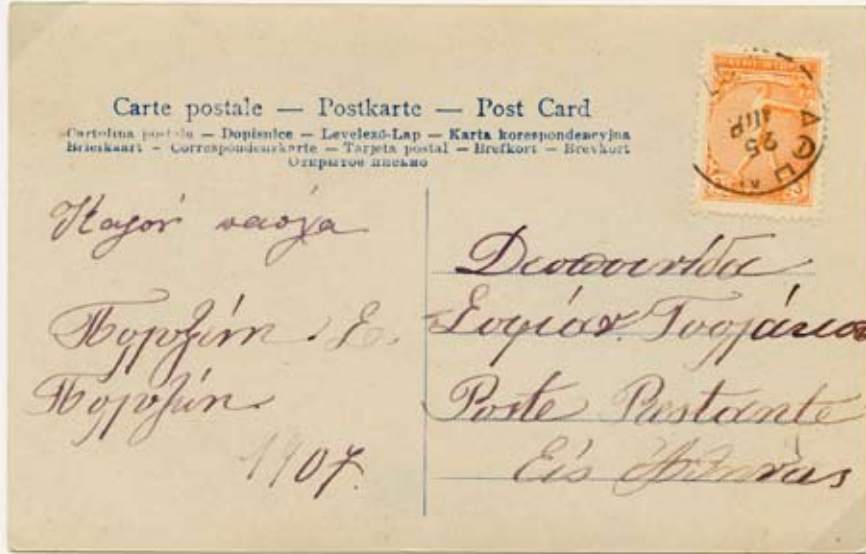 Carte postale — Postkarte — Post Card
Cartolina postale — Dopisnice — Levelező-Lap — Karta korespondencyjna
Briefkaart — Correspondenzkarte — Tarjeta postal — Brefkort — Brevkort
Открытое письмо
25
ΑΠΡ.
Καλόν πάσχα
Πολυξένη Σ.
Πολυξένη
1907.
Δεσποινίδα
Σοφίαν
Poste Restante
Εἰς Ἀθήνας